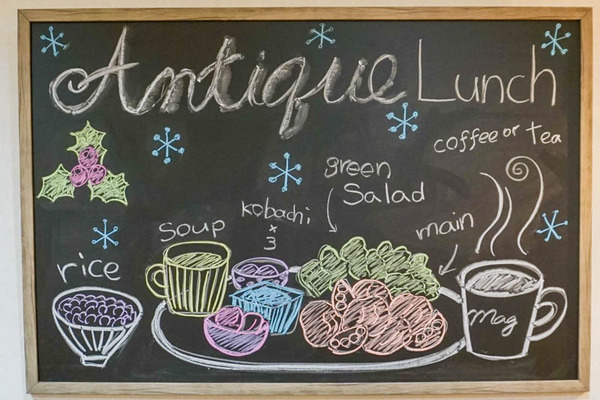 Antique Lunch
coffee or tea
green
Salad
kobachi
×
3
soup
main
rice
Mag